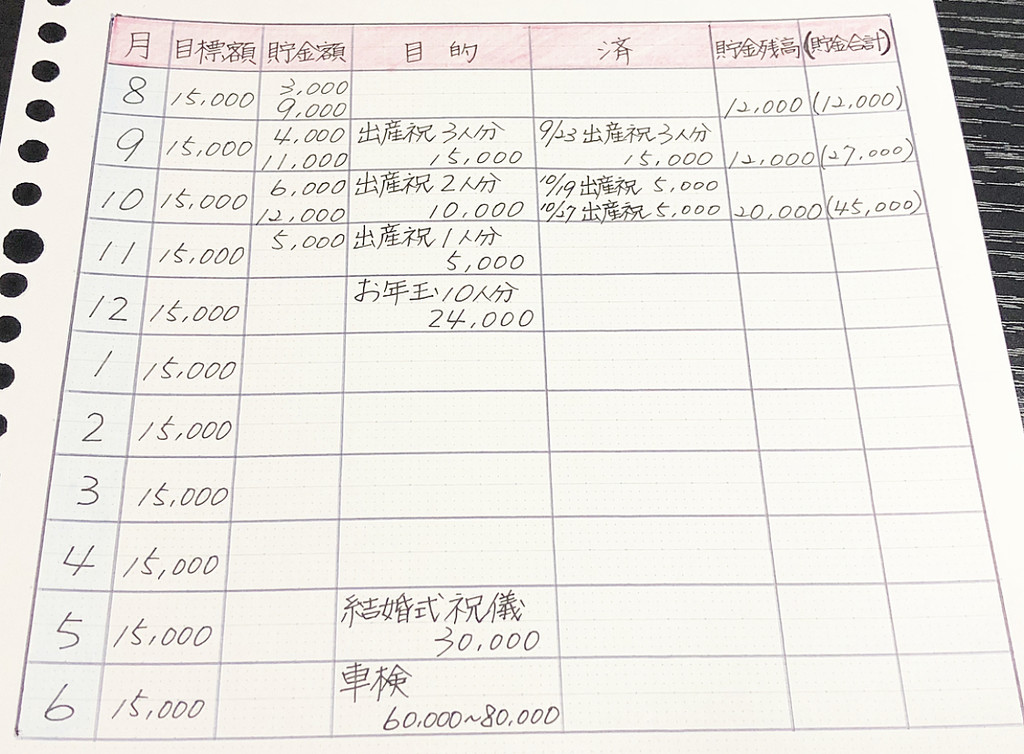 月 目標額 貯金額 目的 済 貯金残高 (貯金合計)
8 15,000 3,000
9,000 12,000 (12,000)
9 15,000 4,000 出産祝 3人分 9/23 出産祝 3人分
11,000 15,000 15,000 12,000 (27,000)
10 15,000 6,000 出産祝 2人分 10/19 出産祝 5,000
12,000 10,000 10/27 出産祝 5,000 20,000 (45,000)
11 15,000 5,000 出産祝 1人分
5,000
12 15,000 お年玉 10人分
24,000
1 15,000
2 15,000
3 15,000
4 15,000
5 15,000 結婚式祝儀
30,000
6 15,000 車検
60,000~80,000